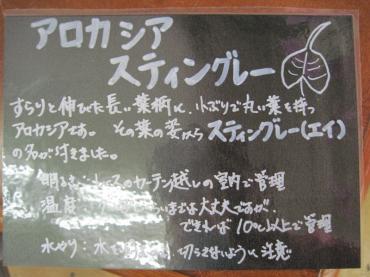 アロカシア
スティングレー
すらりと伸びた長い葉柄に、小ぶりで丸い葉を持つ
アロカシアです。その葉の姿から スティングレー(エイ)
の名が付きました。
明るさ:レースのカーテン越しの室内で管理
温度 までは大丈夫ですが、
できれば10℃以上で管理
水やり:水を 切らさないように注意